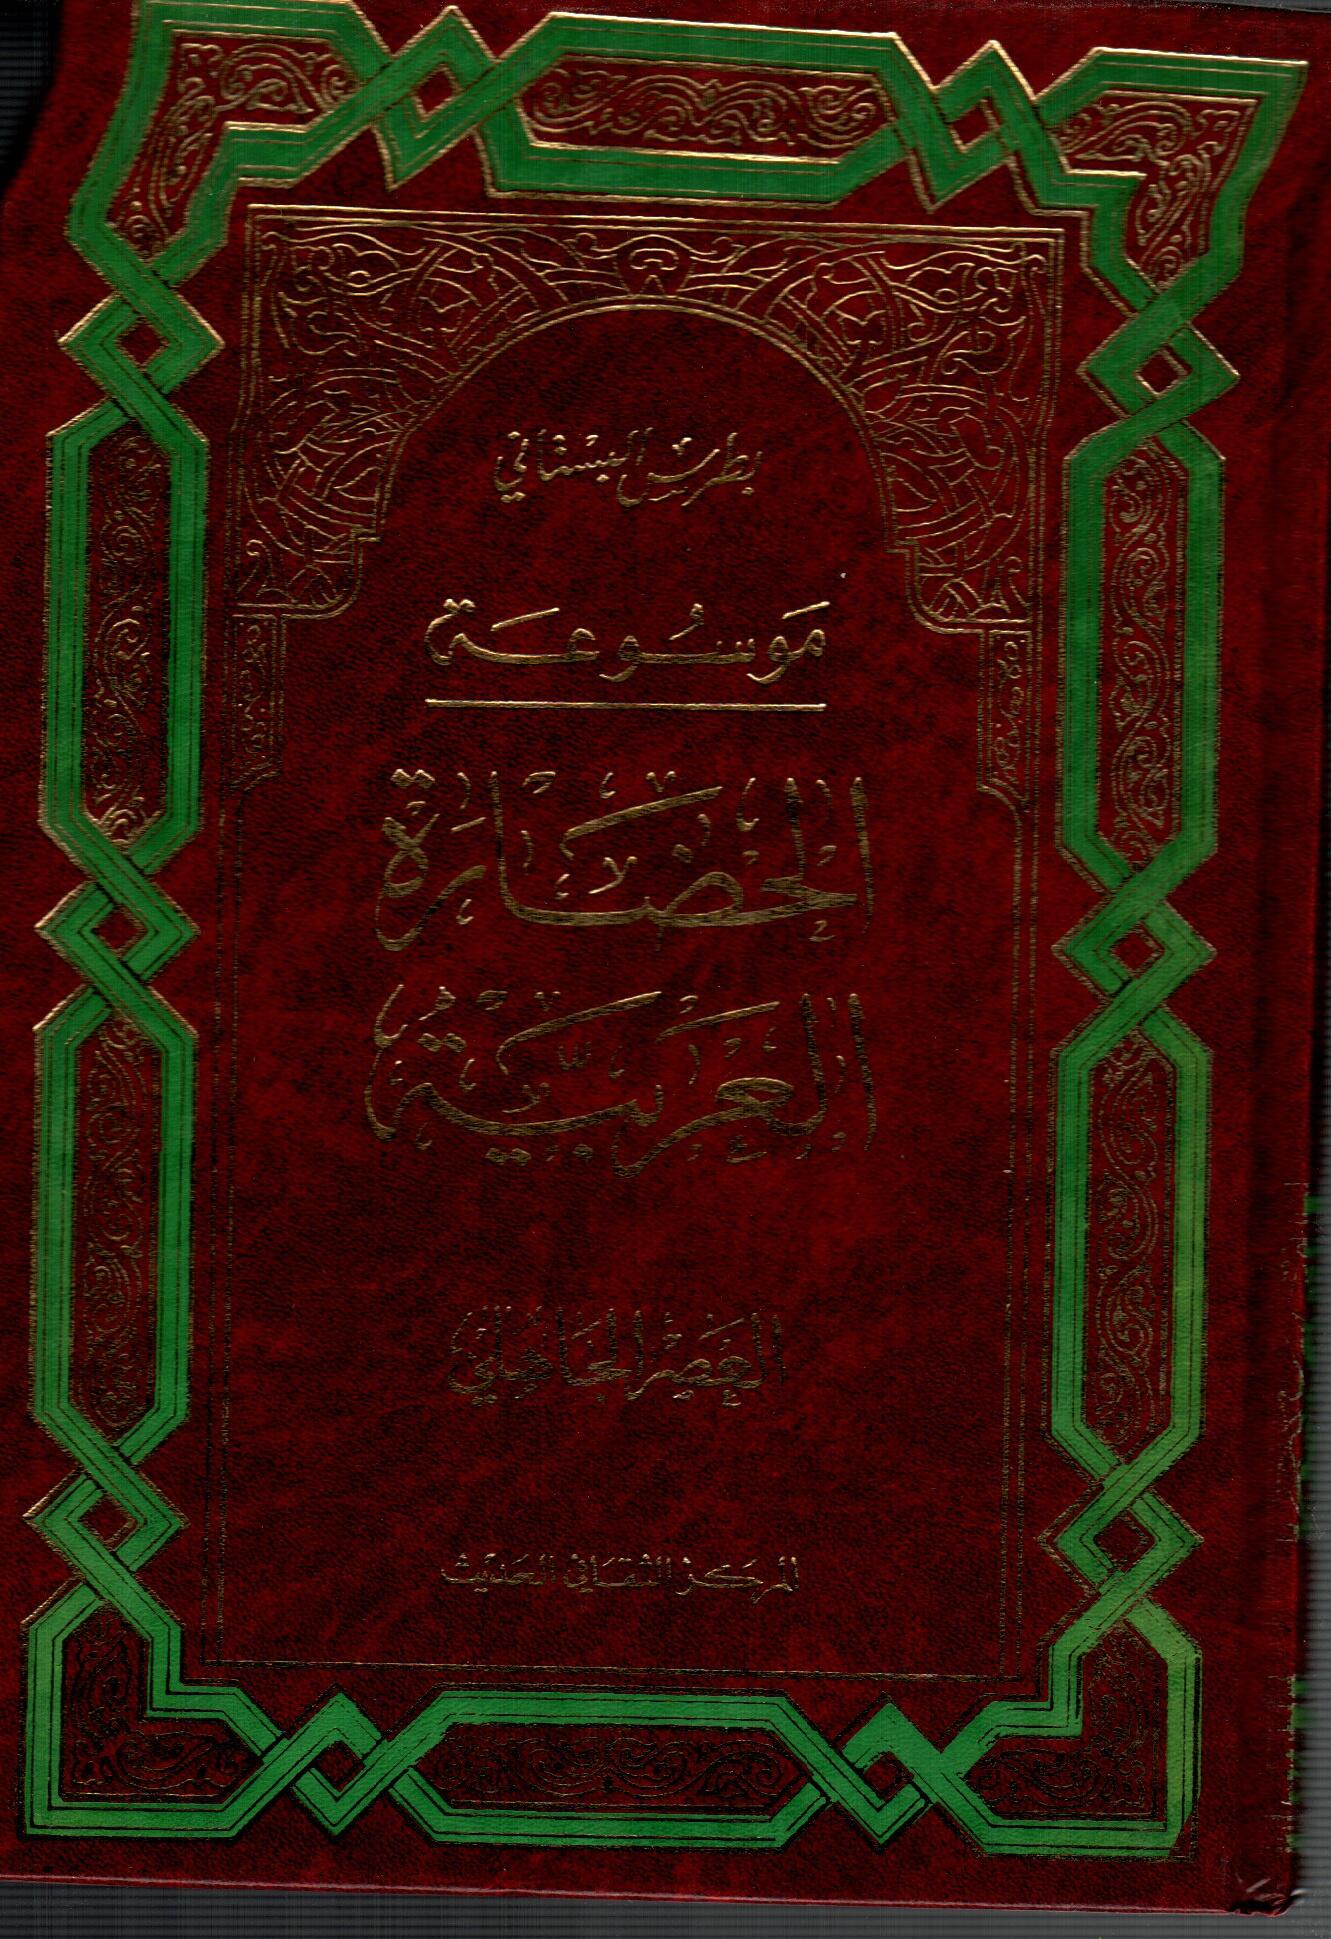 بطرس البستاني
مَوسُوعَة
الحضَارَة
العَربَيّة
العَصر الجَاهِلي
المركز الثقافي الحديث